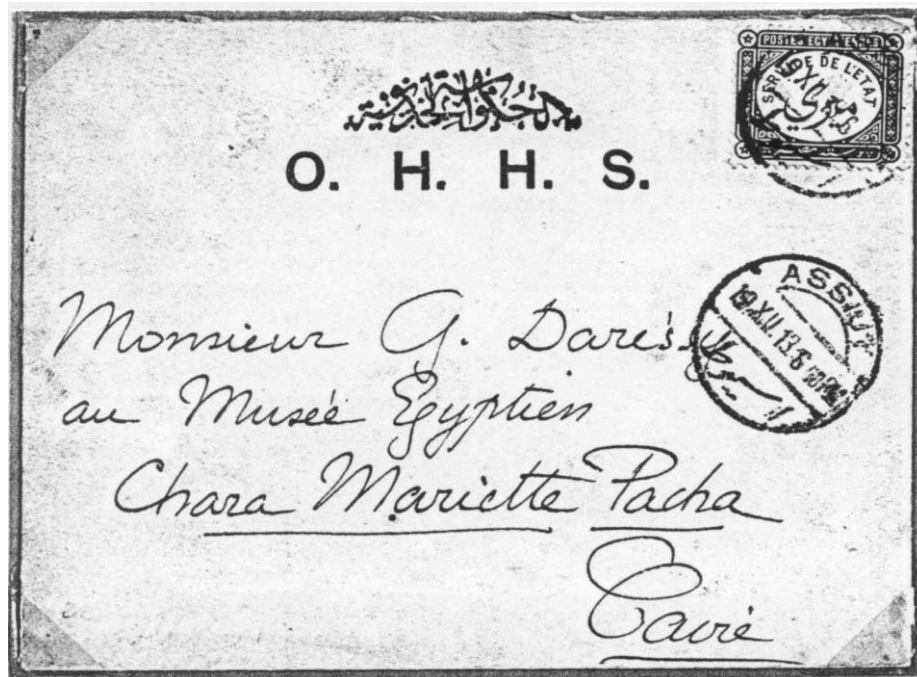 POSTES EGYPTIENNES
SERVICE DE L'ETAT
O. H. H. S.
ASSIUT
19 XII 13
Monsieur G. Daressy
au Musée Egyptien
Chara Mariette Pacha
Caire